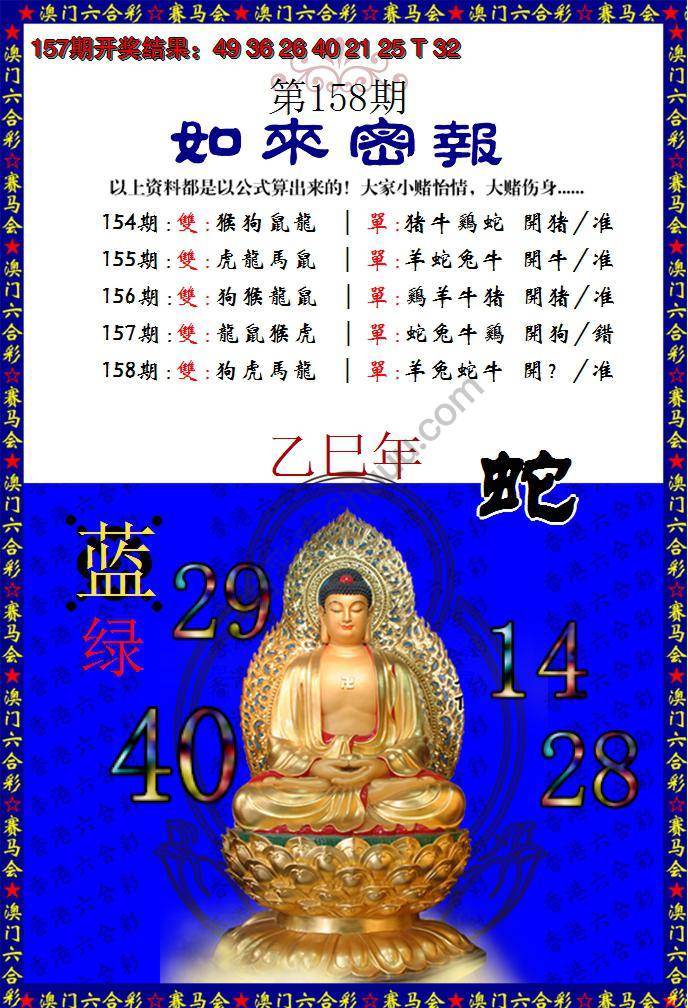 ★澳门六合彩☆赛马会★澳门六合彩☆赛马会★澳门六合彩☆赛马会★
157期开奖结果：49 36 26 40 21 25 T 32
第158期
如來密報
以上资料都是以公式算出来的！大家小赌怡情，大赌伤身......
154期:雙:猴狗鼠龍 | 單:猪牛鷄蛇 開猪/准
155期:雙:虎龍馬鼠 | 單:羊蛇兔牛 開牛/准
156期:雙:狗猴龍鼠 | 單:鷄羊牛猪 開猪/准
157期:雙:龍鼠猴虎 | 單:蛇兔牛鷄 開狗/錯
158期:雙:狗虎馬龍 | 單:羊兔蛇牛 開?/准
乙巳年
蛇
蓝
绿
29
14
40
28
香港六合彩